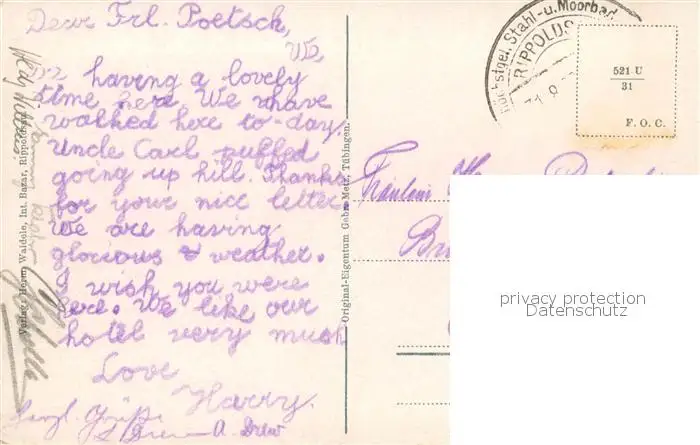 Dear Frl. Poetsch,
We
are having a lovely
time here. We have
walked here to-day.
Uncle Carl puffed
going up hill. Thanks
for your nice letter.
We are having
glorious & weather.
I wish you were
here. We like our
hotel very much
Love
Harry.
Herzl. Grüße
A. Drew
Verlag: Herm. Waidele, Int. Bazar, Rippoldsau
Original-Eigentum Gebr. Metz, Tübingen.
Höchstgel. Stahl-u. Moorbad
RIPPOLDS
521 U
31
F. O. C.
Fräulein
privacy protection
Datenschutz